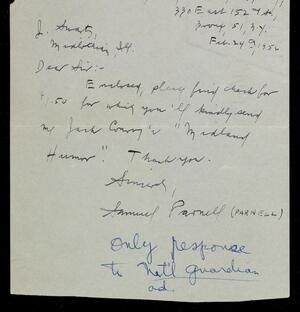 330 East 152 St,
Bronx 51, N.Y.
Feb. 24th, 1956
J. Swartz,
Midlothian, Ill.
Dear Sir:-
Enclosed, please find check for
$1.50 for which you'll kindly send
me Jack Conroy's "Midland
Humor." Thank you.
Sincerely,
Samuel Parnell (PARNELL)
Only response
to Nat'l Guardian
ad.